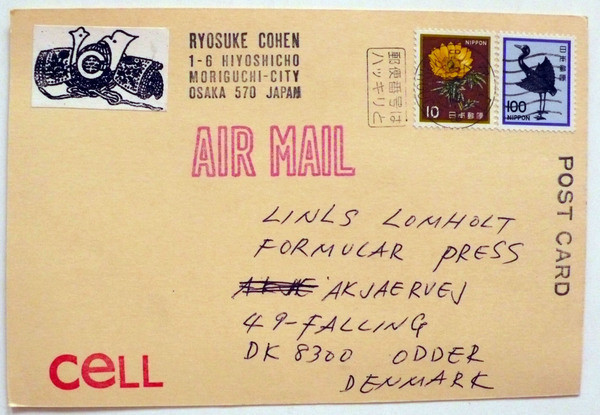 RYOSUKE COHEN
1-6 HIYOSHICHO
MORIGUCHI-CITY
OSAKA 570 JAPAN
郵便番号は
ハッキリと
NIPPON
10
日本郵便
日本郵便
100
NIPPON
AIR MAIL
POST CARD
LINLS LOMHOLT
FORMULAR PRESS
AKJAERVEJ
49-FALLING
DK 8300 ODDER
DENMARK
CELL